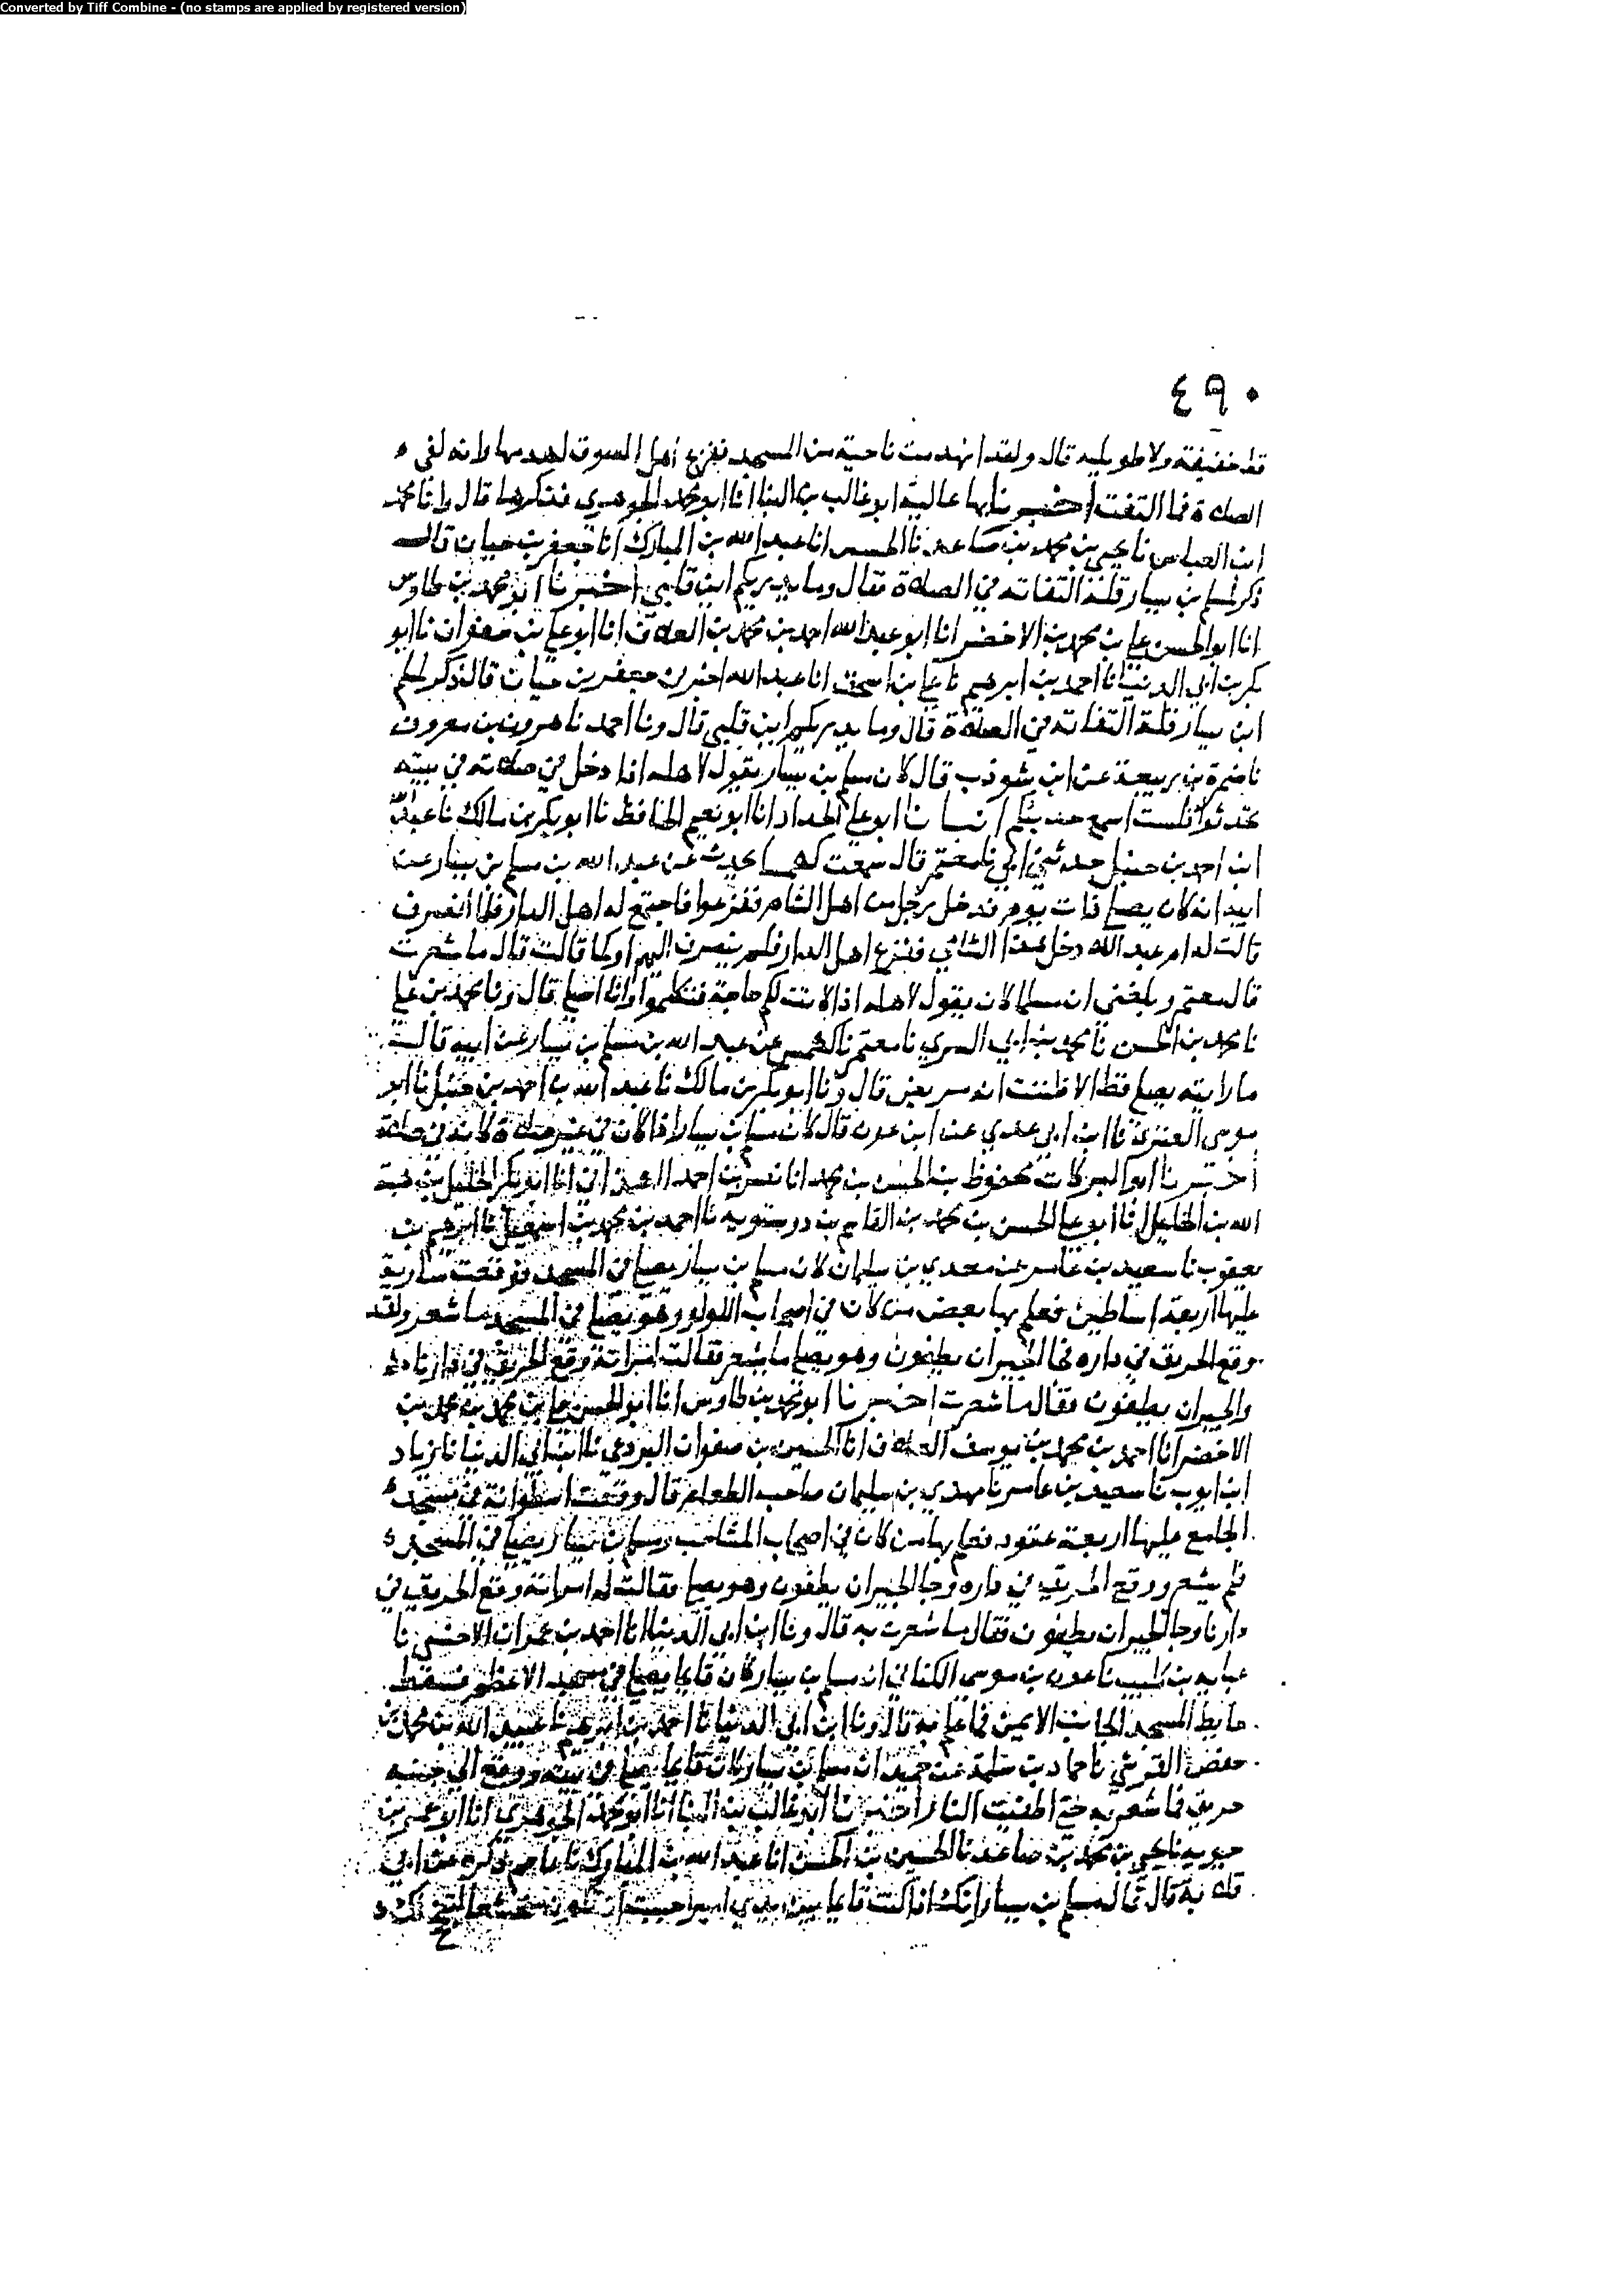 Converted by Tiff Combine - (no stamps are applied by registered version)
٤٩٠
قط خفيفة ولا طويلة قال ولقد انهدمت ناحية من المسجد ففزع أهل السوق لهدمها وانه لفي
الصلاة فما التفت أخبرنا بها عالية ابو غالب بن البنا انا ابو محمد الجوهري فذكرها قال وانا محمد
ابن العباس نا يحيى بن محمد بن صاعد نا الحسين انا عبد الله بن المبارك انا جعفر بن حيان قال
ذكر لمسلم بن يسار قلة التفاته في الصلاة فقال وما يدريكم اين قلبي اخبرنا ابو محمد بن طاوس
انا ابو الحسن علي بن محمد بن الاخضر انا ابو عبد الله احمد بن محمد بن العلاف انا ابو علي بن صفوان نا ابو
بكر بن ابي الدنيا نا احمد بن ابرهيم نا علي بن اسحق انا عبد الله اخبرن جعفر بن حيان قال ذكر لمسلم
ابن يسار قلة التفاته في الصلاة قال وما يدريكم اين قلبي قال ونا احمد نا هرون بن معروف
نا ضمرة بن ربيعة عن ابن شوذب قال كان مسلم بن يسار يقول لاهله اذا دخل في صلاته في بيته
تحدثوا فلست اسمع حديثكم انبانا ابو علي الحداد انا ابو نعيم الحافظ نا ابو بكر بن مالك نا عبد الله
ابن احمد بن حنبل حدثني ابي نا معتمر قال سمعت كهمسا يحدث عن عبد الله بن مسلم بن يسار عن
ابيه انه كان يصلي ذات يوم فدخل رجل من اهل الشام ففزعوا فاجتمع له اهل الدار فلما انصرف
قالت له ام عبد الله دخل هذا الشامي ففزع اهل الدار فلم ينصرف اليهم او كما قالت قال ما شعرت
قال معتمر وبلغني ان مسلما كان يقول لاهله اذا كانت لكم حاجة فتكلموا وانا اصلي قال ونا محمد بن علي
نا محمد بن الحسن نا محمد بن ابي السري نا معتمر نا كهمس عن عبد الله بن مسلم بن يسار عن ابيه قالت
ما رايته يصلي قط الا ظننت انه مريض قال ونا ابو بكر بن مالك نا عبد الله بن احمد بن حنبل نا ابو
موسى العنزي نا ابن ابي عدي عن ابن عون قال كان مسلم بن يسار اذا كان في غير صلاة كانه في صلاة
أخبرنا ابو البركات محفوظ بن الحسن بن محمد انا نصر بن احمد انا ابو بكر الخليل بن هبة
الله بن الخليل انا ابو علي الحسن بن محمد بن القاسم بن درستويه نا احمد بن محمد بن اسمعيل نا ابرهيم بن
يعقوب نا سعيد بن عامر عن معدي بن سليمان كان مسلم بن يسار يصلي في المسجد فوقعت سارية
عليها اربعة اساطين فعلم بها بعض من كان في اصحاب اللولو وهو يصلي في المسجد ما شعر ولقد
وقع الحريق في داره فجا الجيران يطفون وهو يصلي ما يشعر فقالت امراته وقع الحريق في دارنا
والجيران يطفون فقال ما شعرت اخبرنا ابو محمد بن طاوس انا ابو الحسن علي بن محمد بن محمد بن
الاخضر انا احمد بن محمد بن يوسف العلاف انا الحسين بن صفوان البردعي نا ابن ابي الدنيا نا زياد
ابن ايوب نا سعيد بن عامر نا مهدي بن سليمان صاحب الطعام قال وقعت اسطوانة في مسجد
الجامع عليها اربعة عقود فعلم بها من كان في اصحاب ومسلم بن يسار يصلي في المسجد
فلم يشعر ووقع الحريق في داره وجا الجيران يطفون وهو يصلي فقالت له امراته وقع الحريق في
دارنا وجا الجيران يطفون فقال ما شعرت به قال ونا ابن ابي الدنيا انا احمد بن عمران الاخنسي نا
عون بن موسى ان مسلم بن يسار كان قايما يصلي في مسجد الاعظم فسقط
حايط المسجد الجانب الايمن فما علم به قال ونا ابن ابي الدنيا نا احمد بن ابرهيم نا عبيد الله بن محمد بن
حفص القرشي نا حماد بن سلمة عن حميد ان مسلم بن يسار كان قايما يصلي في بيته فوقع الى جنبه
حريق فما شعر به حتى اطفيت النار اخبرنا ابو غالب بن البنا انا ابو محمد الجوهري انا ابو عمر بن
حيويه نا يحيى بن محمد بن صاعد نا الحسين بن الحسن انا عبد الله بن المبارك نا عاصم عن ابي
قلابة قال قال مسلم بن يسار انك اذا كنت قايما بين يدي امير احببت ان تكون